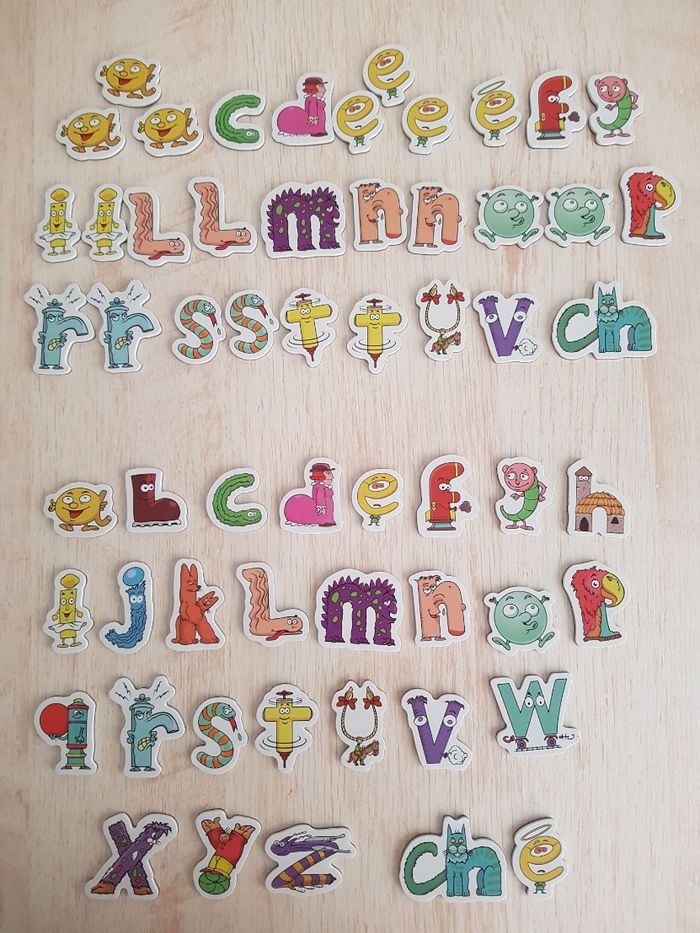 a e
a a c d e e e f g
i i l l m n n o o p
r r s s t t u v ch
a b c d e f g h
i j k l m n o p
q r s t u v w
x y z ch e